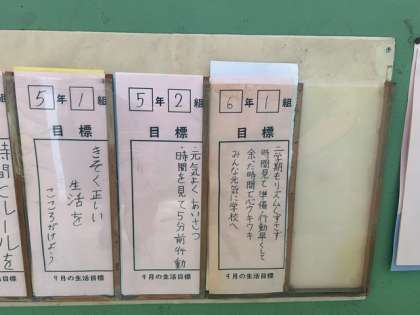 時間とルールを
5年1組
目標
きそく正しい
生活を
こころがけよう
9月の生活目標
5年2組
目標
元気よくあいさつ
・時間を見て5分前行動
9月の生活目標
6年1組
目標
二学期もリズムくずさず
時間見て準備・行動早くして
余った時間で心ウキウキ
みんな元気に学校へ
9月の生活目標